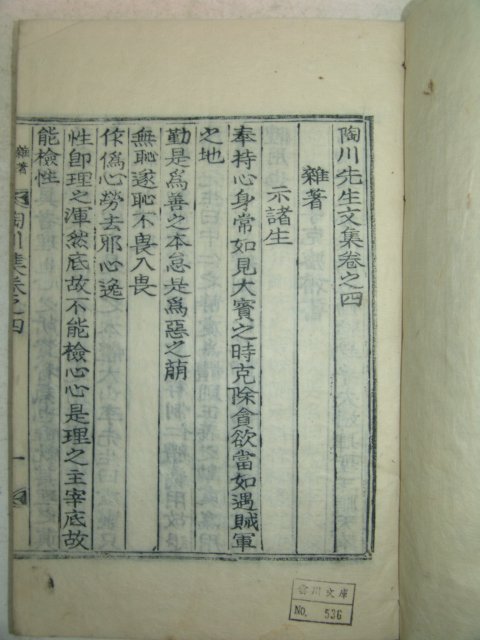 陶川先生文集卷之四
雜著
示諸生
奉持心身常如見大賓之時克除貪欲當如遇賊軍
之地
勤是爲善之本怠是爲惡之萠
無恥遂恥不畏入畏
作僞心勞去邪心逸
性卽理之渾然底故不能檢心心是理之主宰底故
能檢性
雜著
陶川集卷之四
一
雲川文庫
No. 536